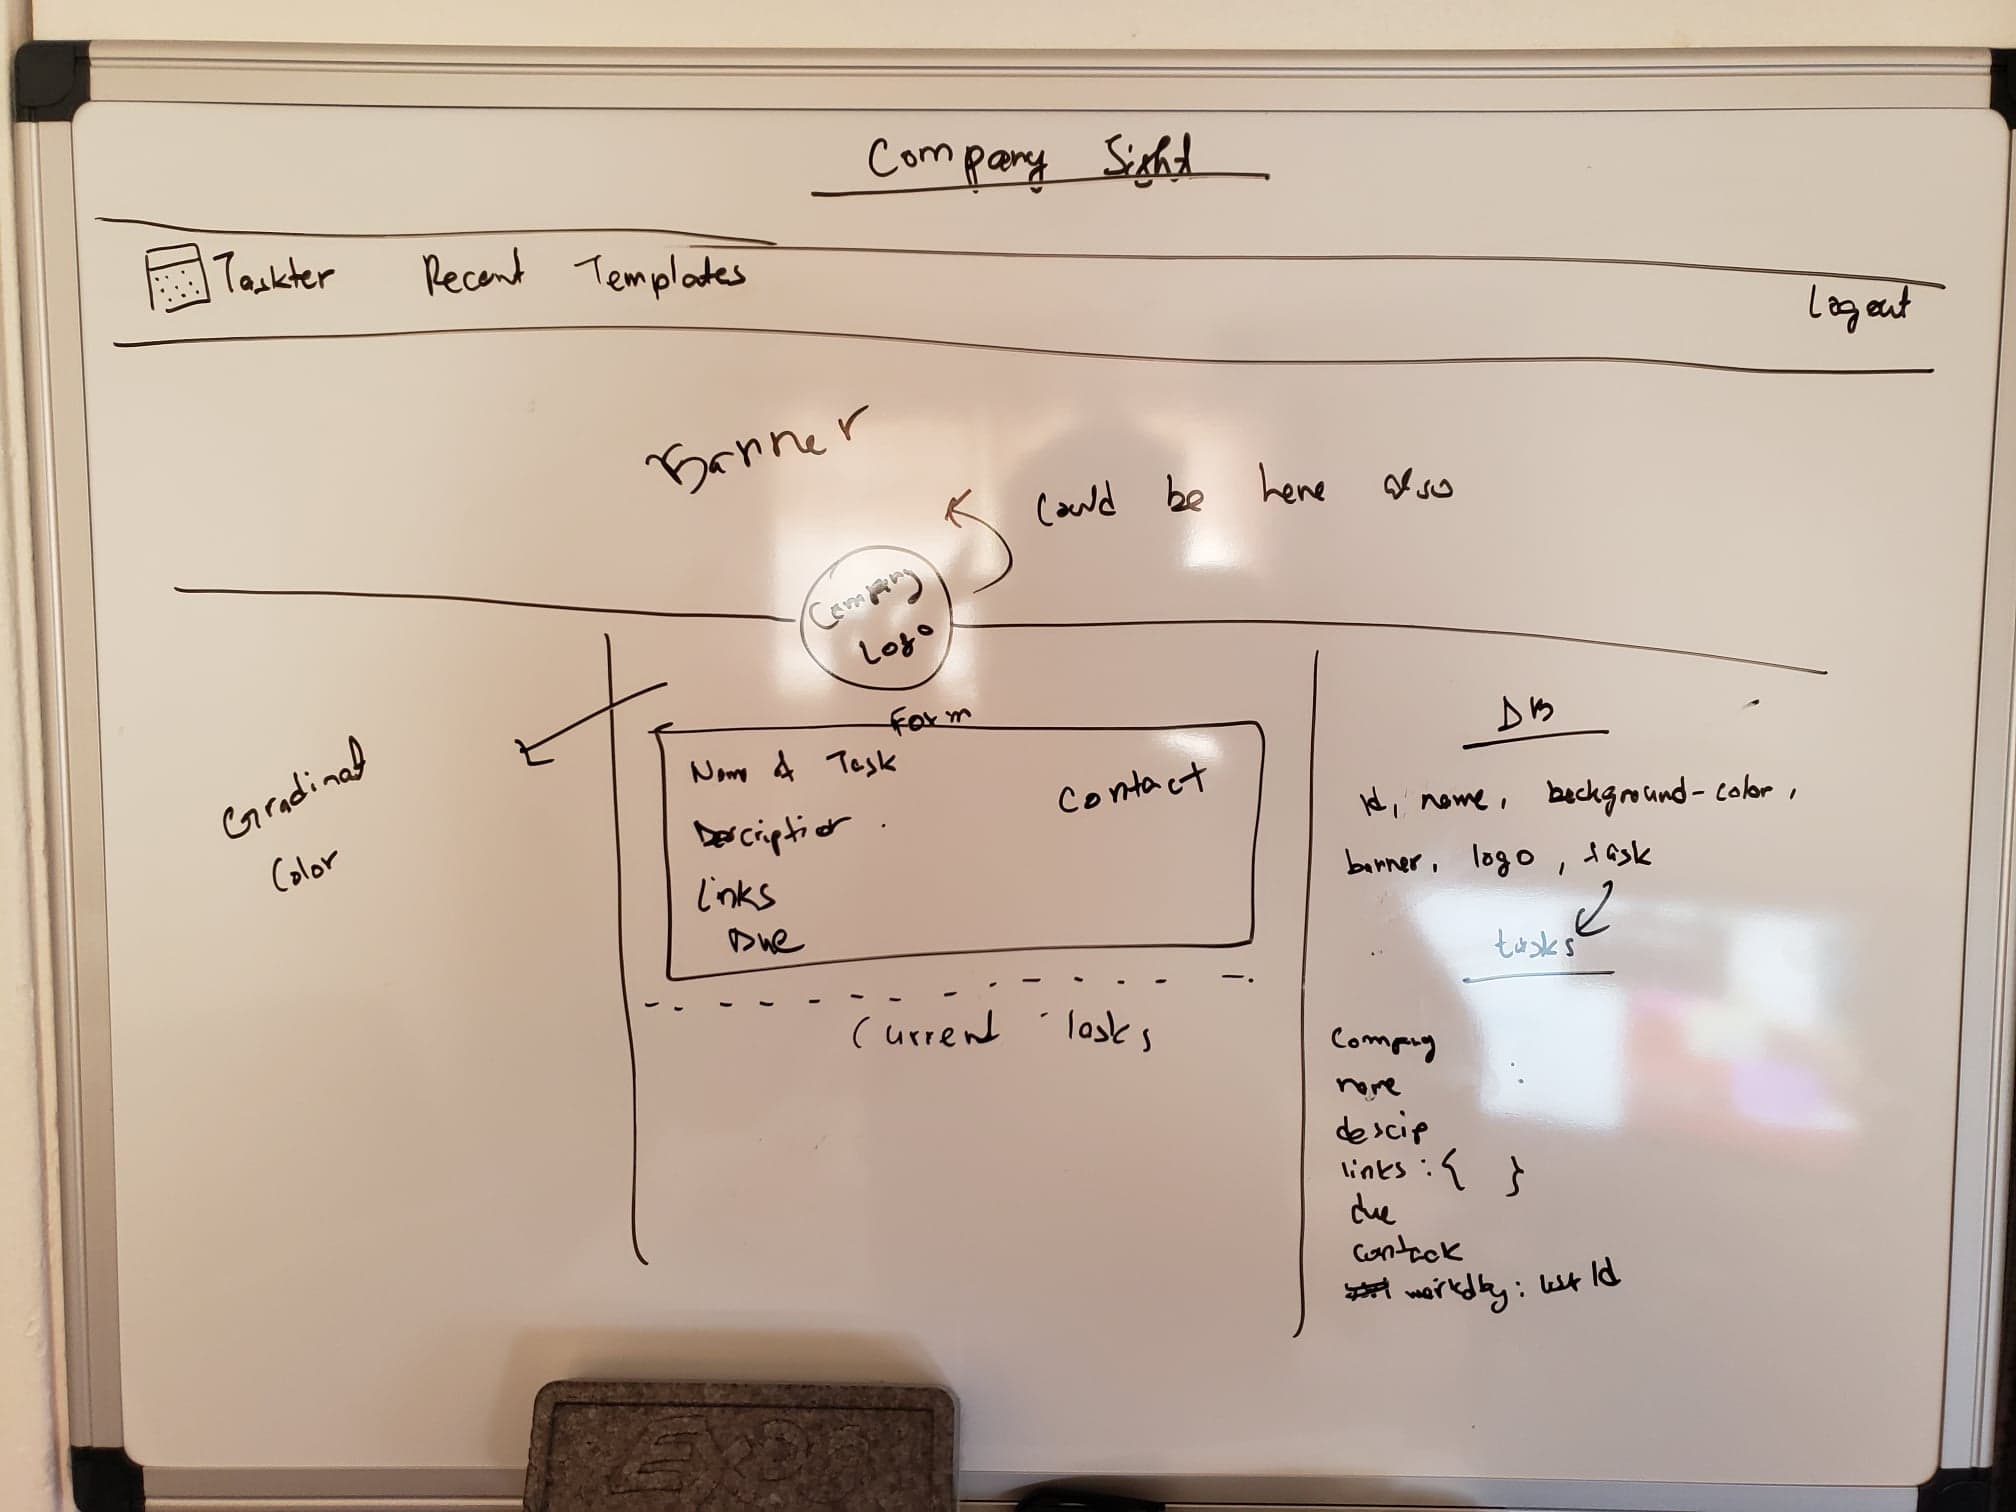 Company Sight
Taskter Recent Templates Logout
Banner
Could be here also
Company
Logo
Gradinat
Color
Form
Name of Task
Contact
Description
Links
Due
Current Tasks
DB
Id, name, background-color,
banner, logo, task
tasks
Company
name
descip
links : { }
due
contack
Id
EXPO